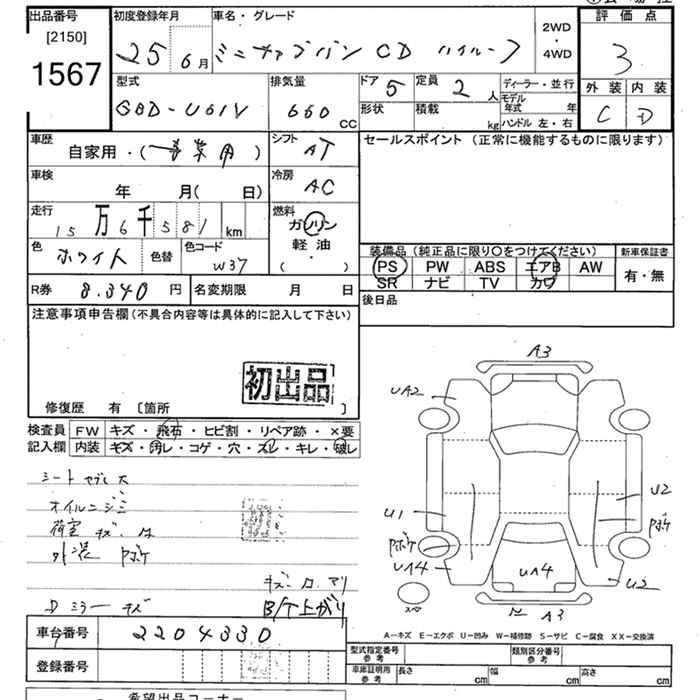 出品番号
[2150]
1567
初度登録年月
25 6月
車名・グレード
ミニキャブバン CD ハイルーフ
2WD
・
4WD
評価点
3
外装 内装
C D
型式
GBD-U61V
排気量
660 CC
ドア 5
定員 2人
形状
積載 kg
ディーラー・並行
モデル年式 年
ハンドル 左・右
車歴
自家用・(事業用)
シフト
AT
車検
年 月( 日)
冷房
AC
走行
15万6千581km
燃料
ガソリン
軽油
( )
色
ホワイト
色替
色コード
W37
R券 8.340 円
名変期限 月 日
セールスポイント (正常に機能するものに限ります)
装備品 (純正品に限り〇をつけてください)
PS PW ABS エアB AW
SR ナビ TV カワ
新車保証書
有・無
後日品
注意事項申告欄(不具合内容等は具体的に記入して下さい)
初出品
修復歴 有 [箇所 ]
検査員 FW キズ・飛石・ヒビ割・リペア跡・×要
記入欄 内装 キズ・汚レ・コゲ・穴・スレ・キレ・破レ
シートヤブレ大
オイルニジミ
荷室 キズ・
外装 Pボケ
キズ・
Dミラーキズ
B/T上がり
A3
UA2
U1
U2
Pボケ
Pボケ
UA4
UA4
U2
スペ
A3
A-キズ E-エクボ U-凹み W-補修跡 S-サビ C-腐食 XX-交換済
車台番号 2204330
登録番号
型式指定番号
参考
類別区分番号
参考
車庫証明用
参考
長さ cm
幅 cm
高さ cm
希望出品コーナー